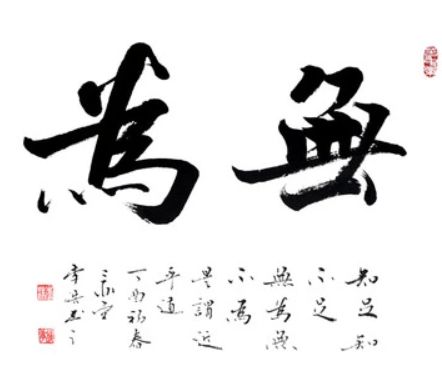 無為
知足知
不足
無為無
不為
是謂近
乎道
丁酉初春